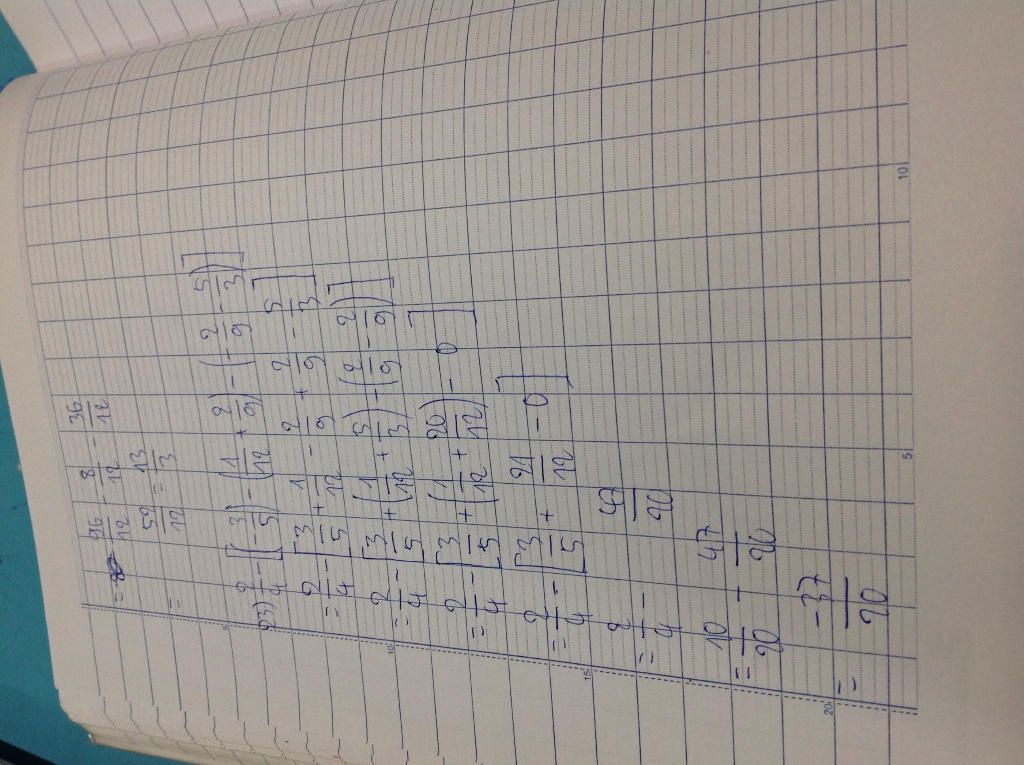 = 96/12 - 8/12 - 36/12
= 52/12 = 13/3
2/4 - [(-3/5) - (1/12 + 2/9) - (-2/9 - 5/3)]
= 2/4 - [3/5 + 1/12 - 2/9 + 2/9 - 5/3]
= 2/4 - [3/5 + (1/12 + 5/3) - (2/9 - 2/9)]
= 2/4 - [3/5 + (1/12 + 20/12) - 0]
= 2/4 - [3/5 + 21/12 - 0]
= 2/4 - 47/20
= 10/20 - 47/20
= -37/20
5
10
10
15
20